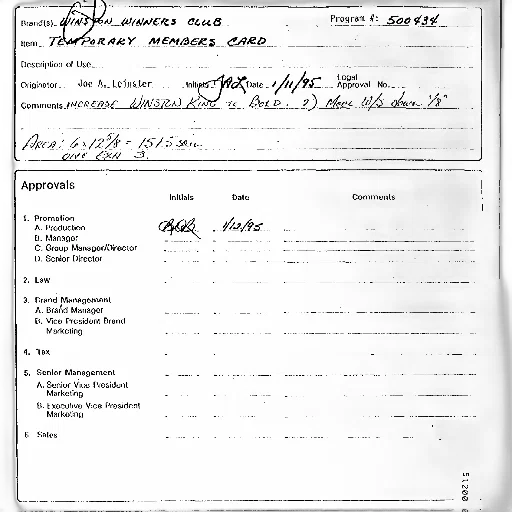 Brand(s) WINSTON WINNERS CLUB Program #: 500434
Item TEMPORARY MEMBERS CARD
Description of Use
Originator Joe A. Leinster Initials JAL Date 1/11/95 Legal Approval No.
Comments INCREASE WINSTON KING to BOLD. 2) Move W/S down 1/8"
AREA: 6x12 5/8 = 151.5 sq in.
Approvals
Initials Date Comments
1. Promotion
A. Production 1/12/95
B. Manager
C. Group Manager/Director
D. Senior Director
2. Law
3. Brand Management
A. Brand Manager
B. Vice President Brand
Marketing
4. Tax
5. Senior Management
A. Senior Vice President
Marketing
B. Executive Vice President
Marketing
6. Sales